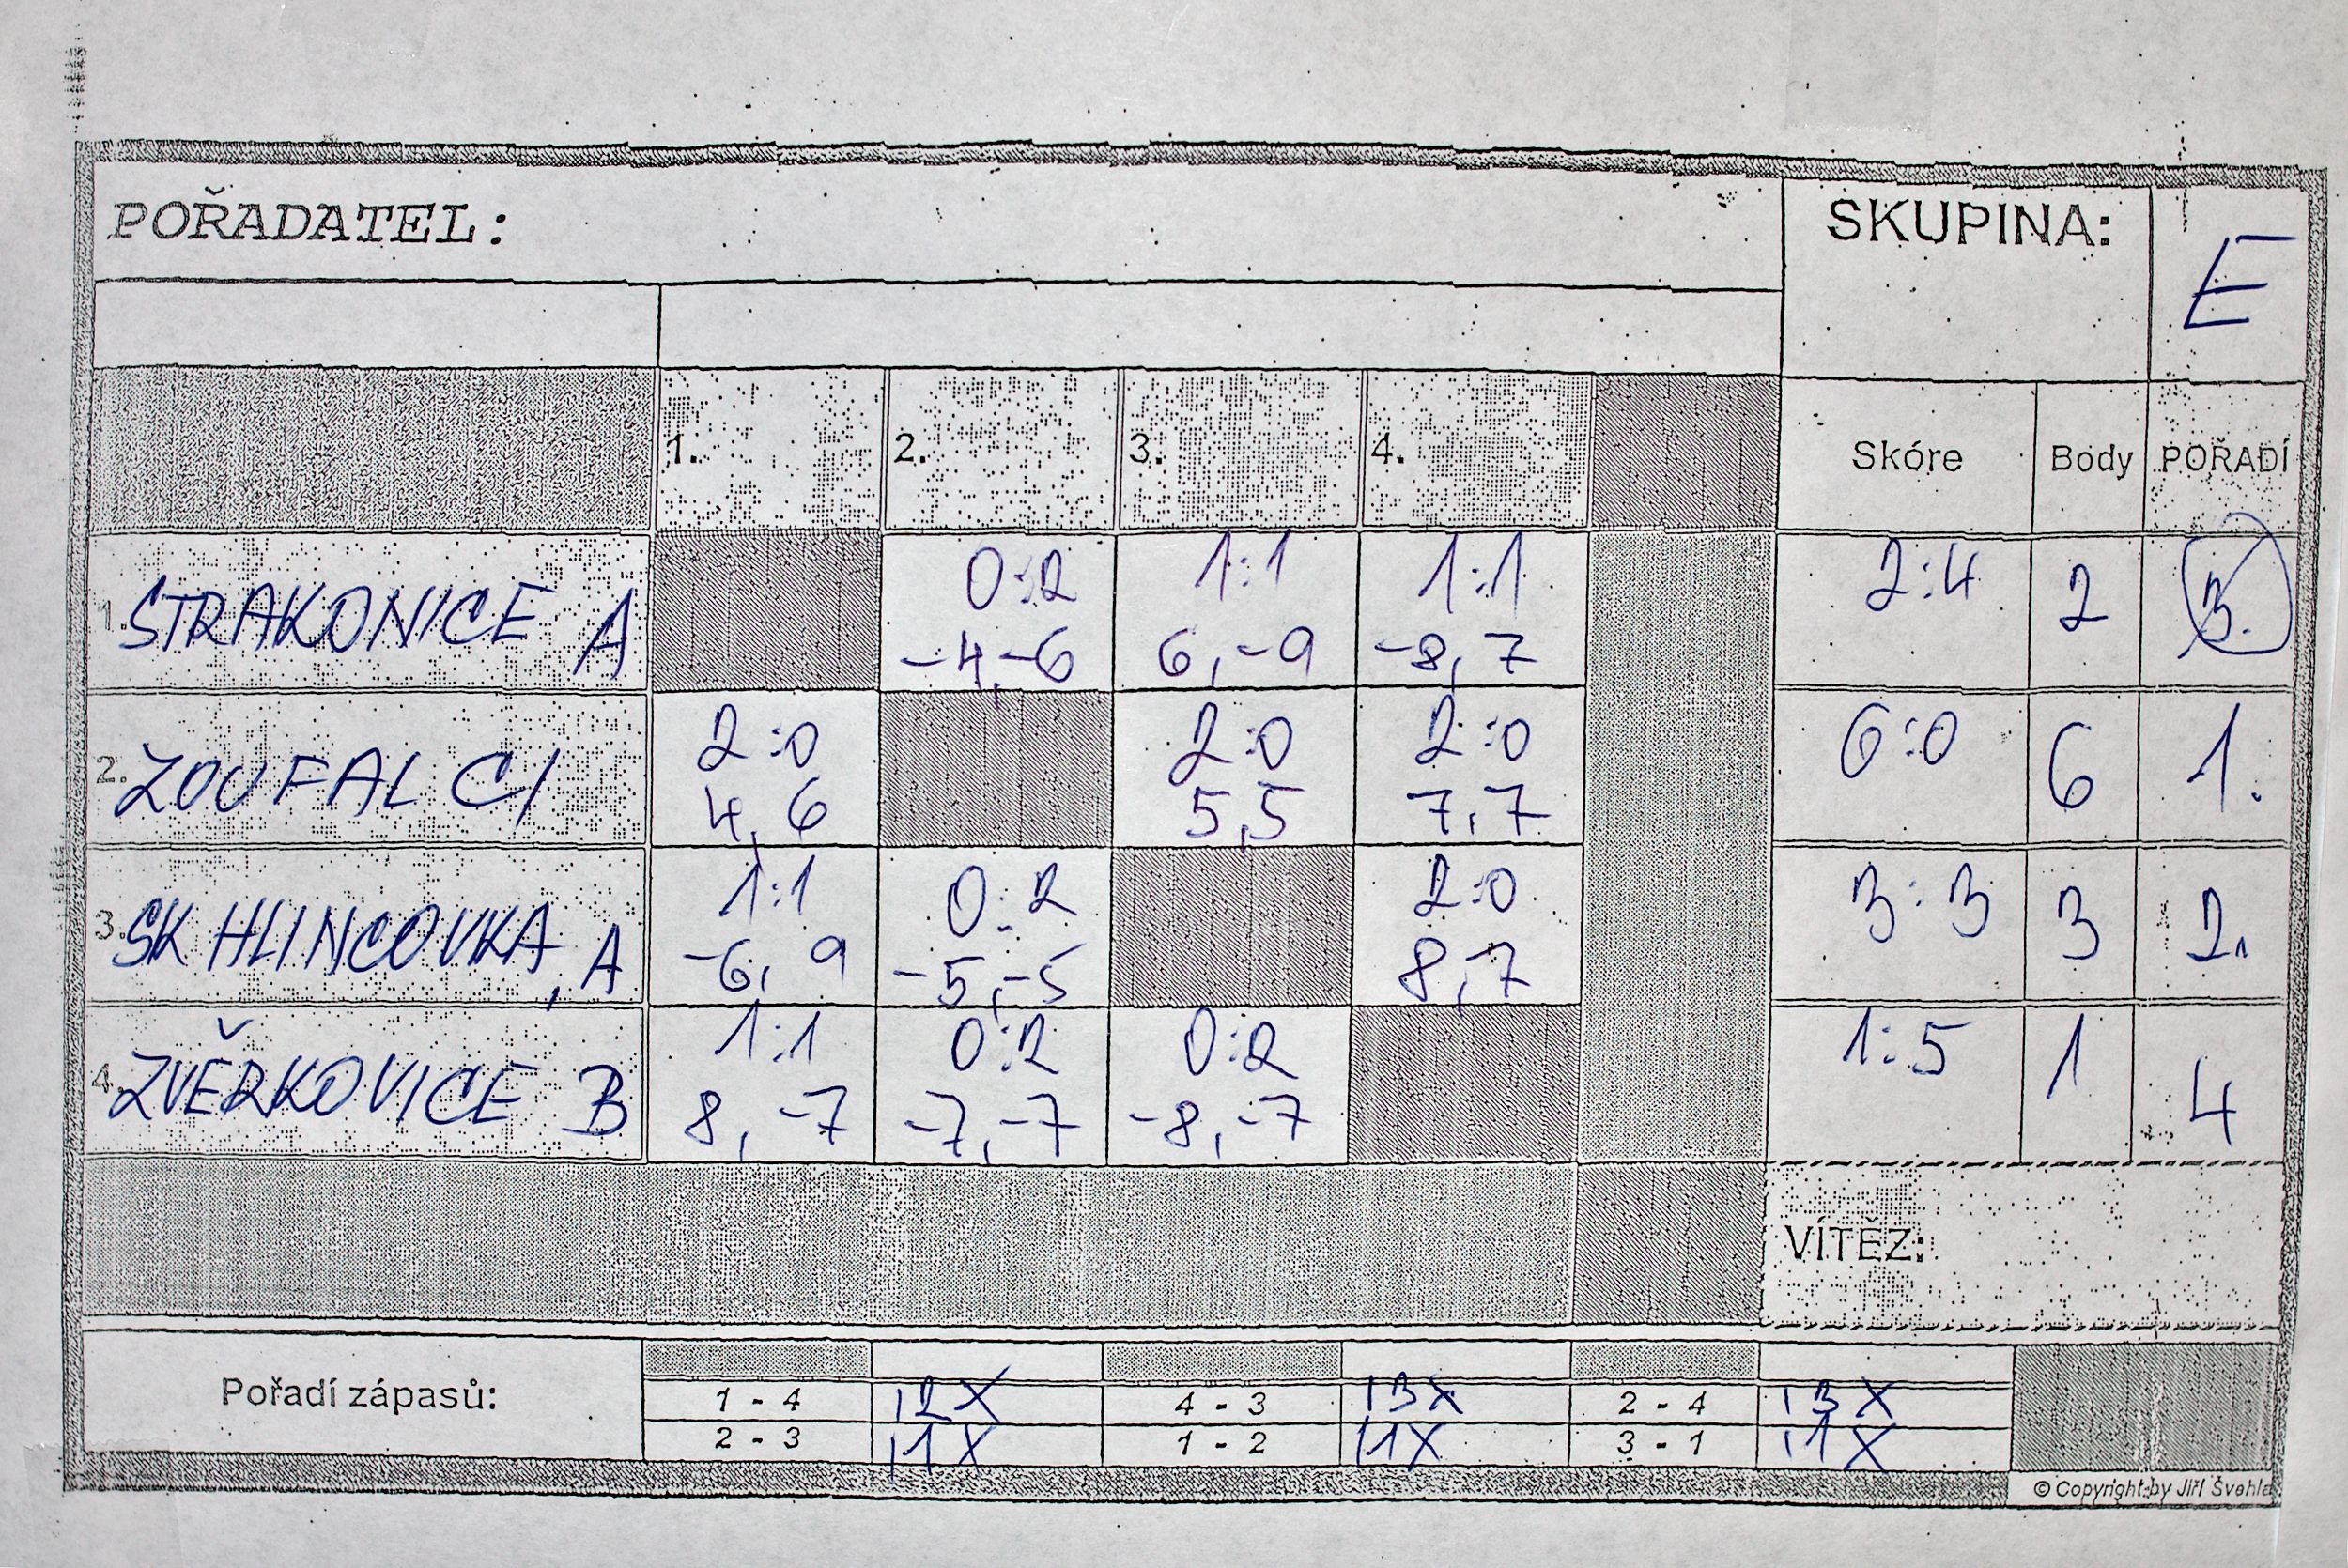 POŘADATEL:
SKUPINA:
E
1. 2. 3. 4. Skóre Body POŘADÍ
1. STRAKONICE A 0:2 1:1 1:1 2:4 2 3.
-4,-6 6,-9 -8,7
2. ZOUFALCI 2:0 2:0 2:0 6:0 6 1.
4,6 5,5 7,7
3. SK HLINCOVKA, A 1:1 0:2 2:0 3:3 3 2.
-6,9 -5,-5 8,7
4. ZVĚRKOVICE B 1:1 0:2 0:2 1:5 1 4
8,-7 -7,-7 -8,-7
VÍTĚZ:
Pořadí zápasů:
1 - 4 12X 4 - 3 13X 2 - 4 13X
2 - 3 11X 1 - 2 11X 3 - 1 11X
© Copyright by Jiří Švehla